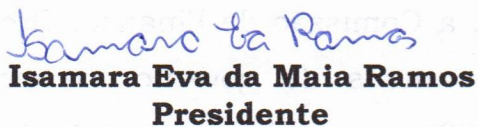 Isamara Eva Ramos
Isamara Eva da Maia Ramos
Presidente